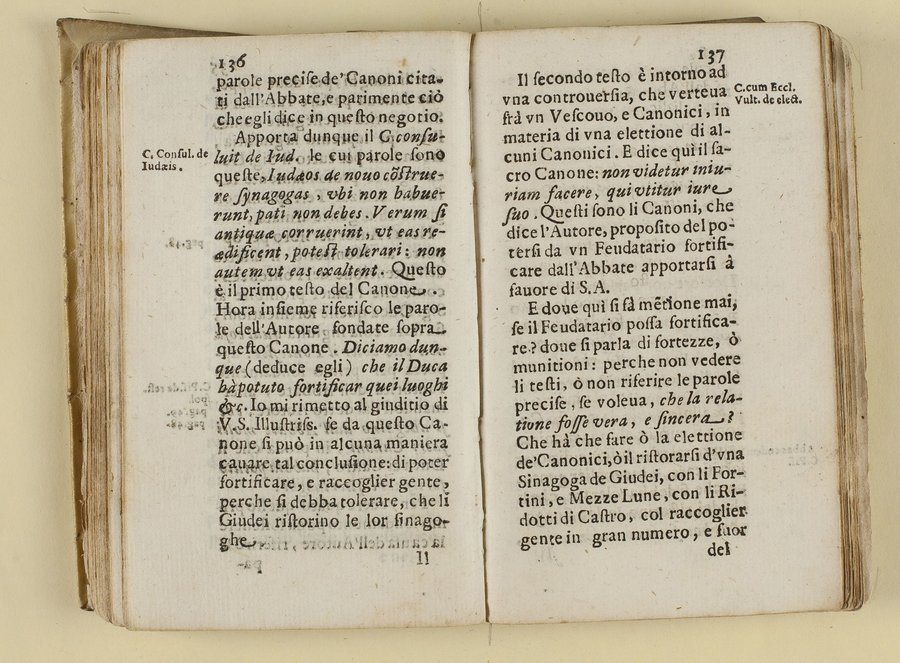 136
parole preciſe de'Canoni cita-
ti dall'Abbate, e parimente ciò
che egli dice in queſto negotio.
Apporta dunque il C. conſu-
C. Conſul. de
Iudæis.
luit de Iud. le cui parole ſono
queſte, Iudæos de nouo cõſtrue-
re ſynagogas, vbi non habue-
runt, pati non debes. Verum ſi
antiquæ corruerint, vt eas re-
ædificent, poteſt tolerari: non
autem vt eas exaltent. Queſto
è il primo teſto del Canone.
Hora inſieme riferiſco le paro-
le dell'Autore fondate ſopra
queſto Canone. Diciamo dun-
que (deduce egli) che il Duca
hà potuto fortificar quei luoghi
&c. Io mi rimetto al giuditio di
V.S. Illuſtriſs. ſe da queſto Ca-
none ſi può in alcuna maniera
cauare tal concluſione: di poter
fortificare, e raccoglier gente,
perche ſi debba tolerare, che li
Giudei riſtorino le lor ſinago-
ghe.
Il
137
Il ſecondo teſto è intorno ad
vna controuerſia, che verteua
C. cum Eccl.
Vult. de elect.
frà vn Veſcouo, e Canonici, in
materia di vna elettione di al-
cuni Canonici. E dice quì il ſa-
cro Canone: non videtur iniu-
riam facere, qui vtitur iure
ſuo. Queſti ſono li Canoni, che
dice l'Autore, propoſito del po-
terſi da vn Feudatario fortifi-
care dall'Abbate apportarſi à
fauore di S.A.
E doue quì ſi fà mẽtione mai,
ſe il Feudatario poſſa fortifica-
re? doue ſi parla di fortezze, ò
munitioni: perche non vedere
li teſti, ò non riferire le parole
preciſe, ſe voleua, che la rela-
tione foſſe vera, e ſincera?
Che hà che fare ò la elettione
de'Canonici, ò il riſtorarſi d'vna
Sinagoga de Giudei, con li For-
tini, e Mezze Lune, con li Ri-
dotti di Caſtro, col raccoglier
gente in gran numero, e fuor
del